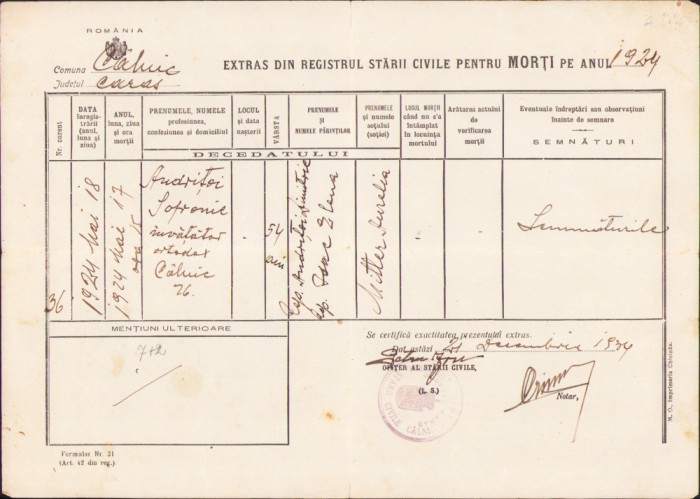 ROMÂNIA
Comuna Câlnic
Județul Caras
EXTRAS DIN REGISTRUL STĂRII CIVILE PENTRU MORȚI PE ANUL 1924
Nr. curent
DATA înregistrării (anul, luna și ziua)
ANUL, luna, ziua și ora morții
PRENUMELE, NUMELE profesiunea, confesiunea și domiciliul
LOCUL și data nașterii
VÂRSTA
PRENUMELE ȘI NUMELE PĂRINȚILOR
PRENUMELE și numele soțului (soției)
LOCUL MORȚII când nu s'a întâmplat în locuința mortului
Arătarea actului de verificarea morții
Eventuale îndreptări sau observațiuni înainte de semnare
SEMNĂTURI
DECEDATULUI
36
1924 Mai 18
1924 Mai 17
ora 15
Andrițoi
Sofronie
învățător
ortodox
Câlnic
76.
54
ani
Andrițoi Dimitrie
Isac Elena
Mitter Aurelia
Semnăturile
MENȚIUNI ULTERIOARE
782
Se certifică exactitatea prezentului extras.
Dat astăzi 21 Decembrie 1934
OFIȚER AL STĂRII CIVILE,
(L. S.)
Notar,
Formular Nr. 21
(Art. 42 din reg.)
M. O. Imprimeria Chișinău.